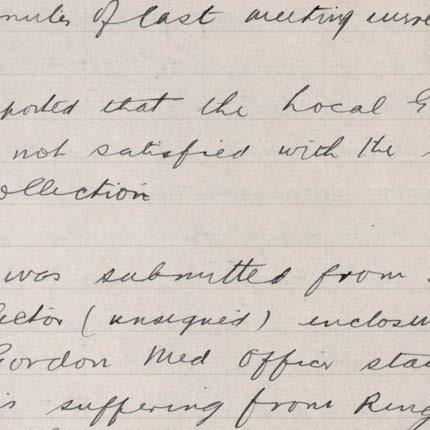 nutes of last meeting were
ported that the Local G
not satisfied with the
ollection
was submitted from
ector (unsigned) enclosin
Gordon Med Officer sta
is suffering from Ring